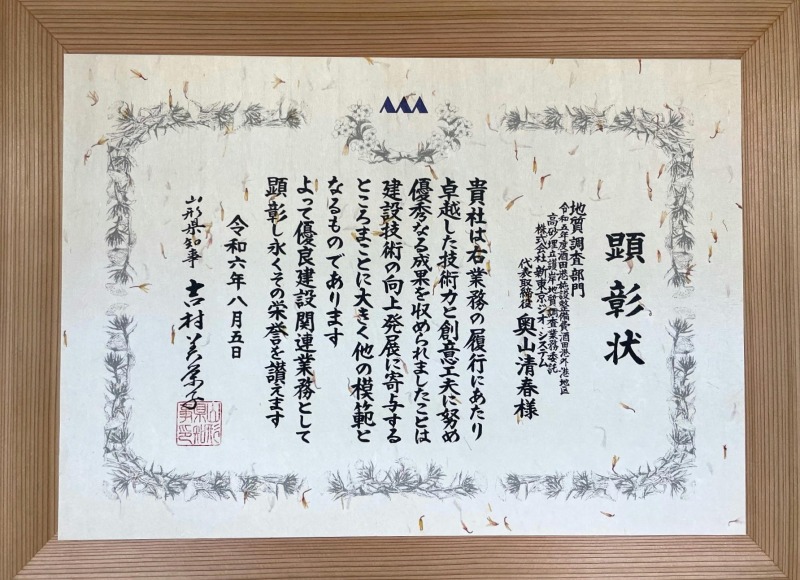 顕彰状
地質調査部門
令和五年度酒田港施設整備費酒田港外港地区
高砂埋立護岸地質調査業務委託
株式会社新東京ジオ・システム
代表取締役 奥山清春様
貴社は右業務の履行にあたり
卓越した技術力と創意工夫に努め
優秀なる成果を収められましたことは
建設技術の向上発展に寄与する
ところまことに大きく他の模範と
なるものであります
よって優良建設関連業務として
顕彰し永くその栄誉を讃えます
令和六年八月五日
山形県知事 吉村美栄子
山形県知事印